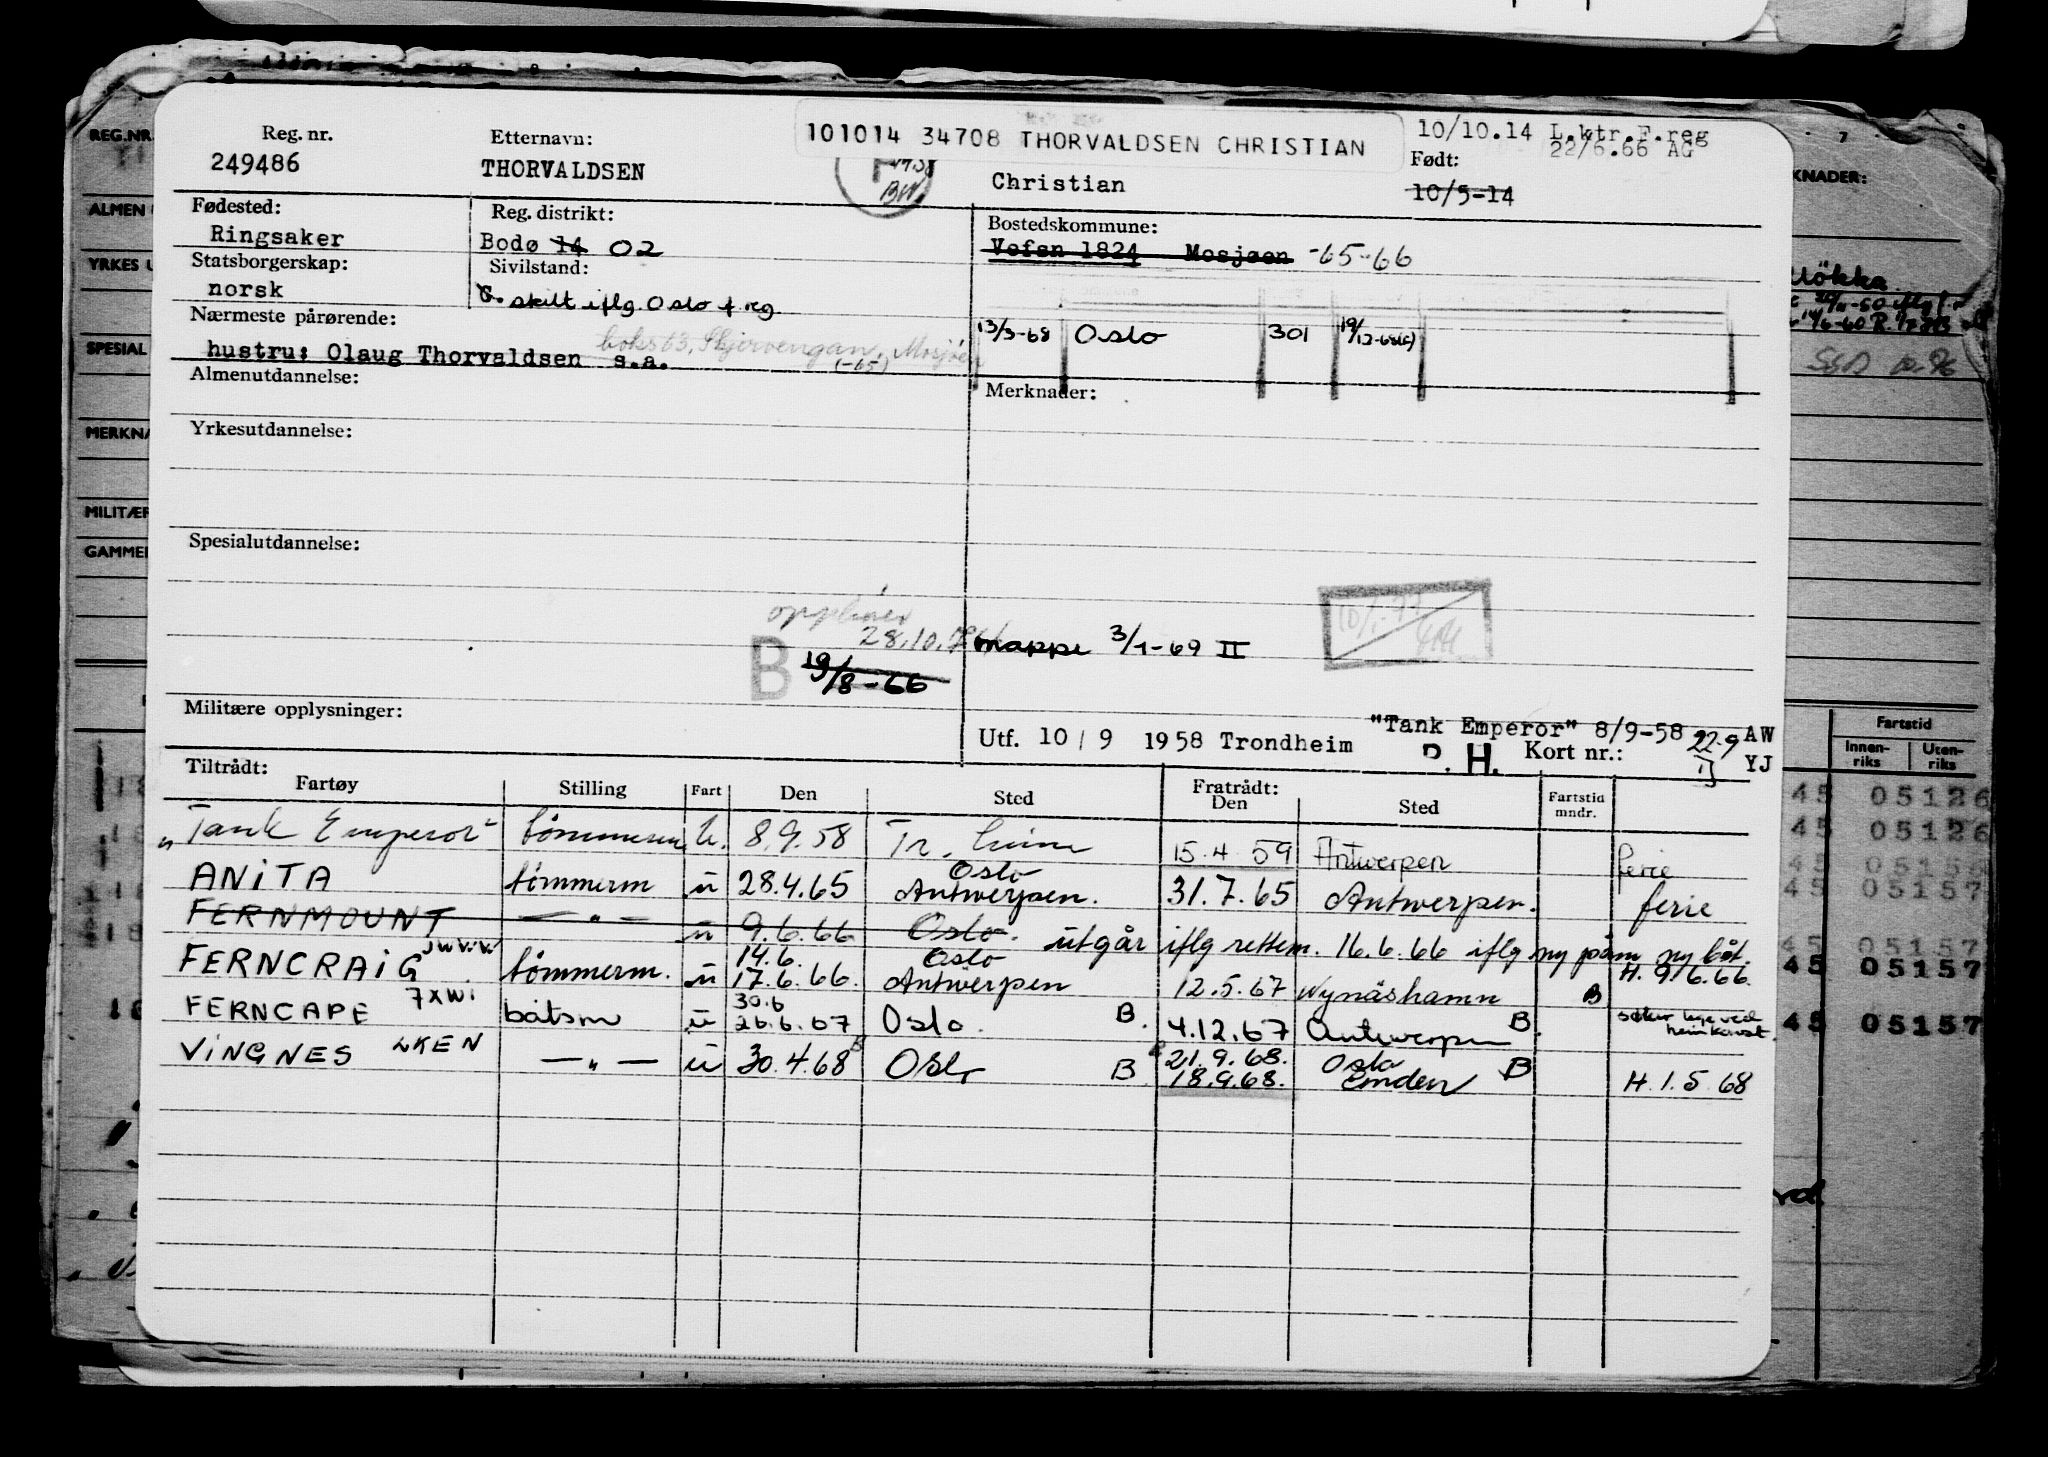 101014 34708 THORVALDSEN CHRISTIAN
10/10.14 L.ktr.F.reg
22/6.66 AG
Reg. nr.
249486
Etternavn:
THORVALDSEN
Christian
Født:
10/5-14
Fødested:
Ringsaker
Reg. distrikt:
Bodø 14 02
Bostedskommune:
Vefsn 1824 Mosjøen -65-66
Statsborgerskap:
norsk
Sivilstand:
G. skilt iflg. Oslo f.reg.
Nærmeste pårørende:
hustru: Olaug Thorvaldsen s.a.
boks 63, Skjervengan, Mosjøen
(-65)
13/3-68 Oslo 301
Almenutdannelse:
Merknader:
Yrkesutdannelse:
Spesialutdannelse:
28.10.
B 19/8-66
mappe 3/1-69 II
Militære opplysninger:
"Tank Emperor" 8/9-58 22.9 AW
Utf. 10/9 1958 Trondheim
Kort nr.: YJ
Tiltrådt:
Fartøy Stilling Fart Den Sted
Fratrådt:
Den Sted Fartstid mndr.
"Tank Emperor" tömmerm u. 8.9.58 15.4.59 Antwerpen ferie
ANITA tömmerm u 28.4.65 Oslo Antwerpen. 31.7.65 Antwerpen. ferie
FERNMOUNT — " — u 9.6.66 Oslo. utgår iflg rettem. 16.6.66 iflg ny påm ny båt.
FERNCRAIG tömmerm. u 14.6. 17.6.66. Oslo Antwerpen 12.5.67 Nynäshamn B H. 9/6.66.
FERNCAPE 7XWI båtsm u 30.6 26.6.67 Oslo. B. 4.12.67 Antwerpen B.
VINGNES LKEN — " — u 30.4.68 Oslo B 21.9.68. 18.9.68. Oslo Emden B H. 1.5.68
REG.NR.
ALMEN
YRKES U
SPESIAL
MERKNA
MILITÆR
GAMMEL
KNADER:
7
Fartstid
Innenriks Utenriks
45 05126
45 05126
45 05156
45 05157
45 05157
45 05157
45 05157